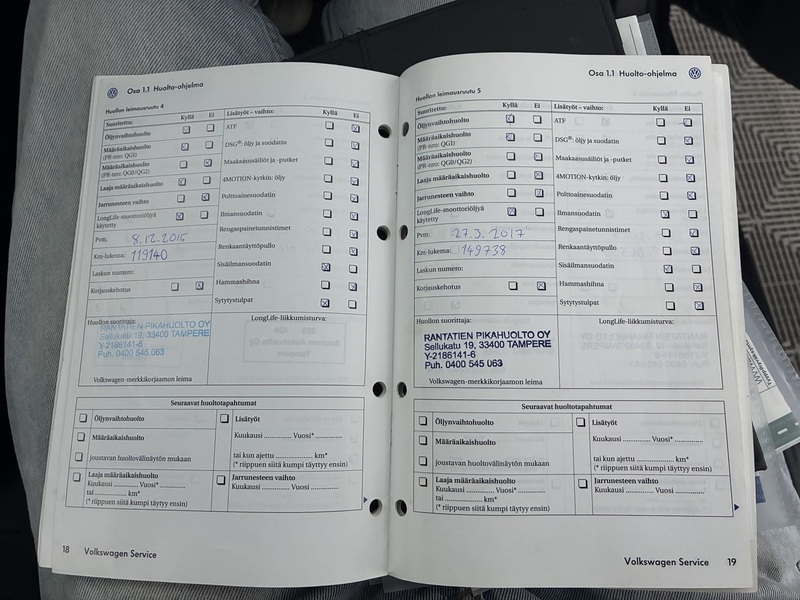 Osa 1.1 Huolto-ohjelma
Huollon leimausruutu 4
Suoritettu: Kyllä Ei Lisätyöt – vaihto: Kyllä Ei
Öljynvaihtohuolto
Määräaikaishuolto
(PR-nro: QGI)
Määräaikaishuolto
(PR-nro: QG0/QG2)
Laaja määräaikaishuolto
Jarrunesteen vaihto
LongLife-moottoriöljyä
käytetty
Pvm. 8.12.2015
Km-lukema: 119140
Laskun numero:
Korjauskehotus
ATF
DSG®: öljy ja suodatin
Maakaasusäiliöt ja -putket
4MOTION-kytkin; öljy
Polttoainesuodatin
Ilmansuodatin
Rengaspainetunnistimet
Renkaantäyttöpullo
Sisäilmansuodatin
Hammashihna
Sytytystulpat
Huollon suorittaja:
RANTATIEN PIKAHUOLTO OY
Sellukatu 19, 33400 TAMPERE
Y-2186141-6
Puh. 0400 545 063
Volkswagen-merkkikorjaamon leima
LongLife-liikkumisturva:
Seuraavat huoltotapahtumat
Öljynvaihtohuolto
Määräaikaishuolto
joustavan huoltovälinäytön mukaan
Laaja määräaikaishuolto
Kuukausi ............ Vuosi* ............
tai ............ km*
(* riippuen siitä kumpi täytyy ensin)
Lisätyöt
Kuukausi ............ Vuosi* ............
tai kun ajettu ............ km*
(* riippuen siitä kumpi täytyy ensin)
Jarrunesteen vaihto
Kuukausi ............ Vuosi ............
18 Volkswagen Service
Osa 1.1 Huolto-ohjelma
Huollon leimausruutu 5
Suoritettu: Kyllä Ei Lisätyöt – vaihto: Kyllä Ei
Öljynvaihtohuolto
Määräaikaishuolto
(PR-nro: QGI)
Määräaikaishuolto
(PR-nro: QG0/QG2)
Laaja määräaikaishuolto
Jarrunesteen vaihto
LongLife-moottoriöljyä
käytetty
Pvm. 27.3.2017
Km-lukema: 149738
Laskun numero:
Korjauskehotus
ATF
DSG®: öljy ja suodatin
Maakaasusäiliöt ja -putket
4MOTION-kytkin; öljy
Polttoainesuodatin
Ilmansuodatin
Rengaspainetunnistimet
Renkaantäyttöpullo
Sisäilmansuodatin
Hammashihna
Sytytystulpat
Huollon suorittaja:
RANTATIEN PIKAHUOLTO OY
Sellukatu 19, 33400 TAMPERE
Y-2186141-6
Puh. 0400 545 063
Volkswagen-merkkikorjaamon leima
LongLife-liikkumisturva:
Seuraavat huoltotapahtumat
Öljynvaihtohuolto
Määräaikaishuolto
joustavan huoltovälinäytön mukaan
Laaja määräaikaishuolto
Kuukausi ............ Vuosi* ............
tai ............ km*
(* riippuen siitä kumpi täytyy ensin)
Lisätyöt
Kuukausi ............ Vuosi* ............
tai kun ajettu ............ km*
(* riippuen siitä kumpi täytyy ensin)
Jarrunesteen vaihto
Kuukausi ............ Vuosi ............
Volkswagen Service 19